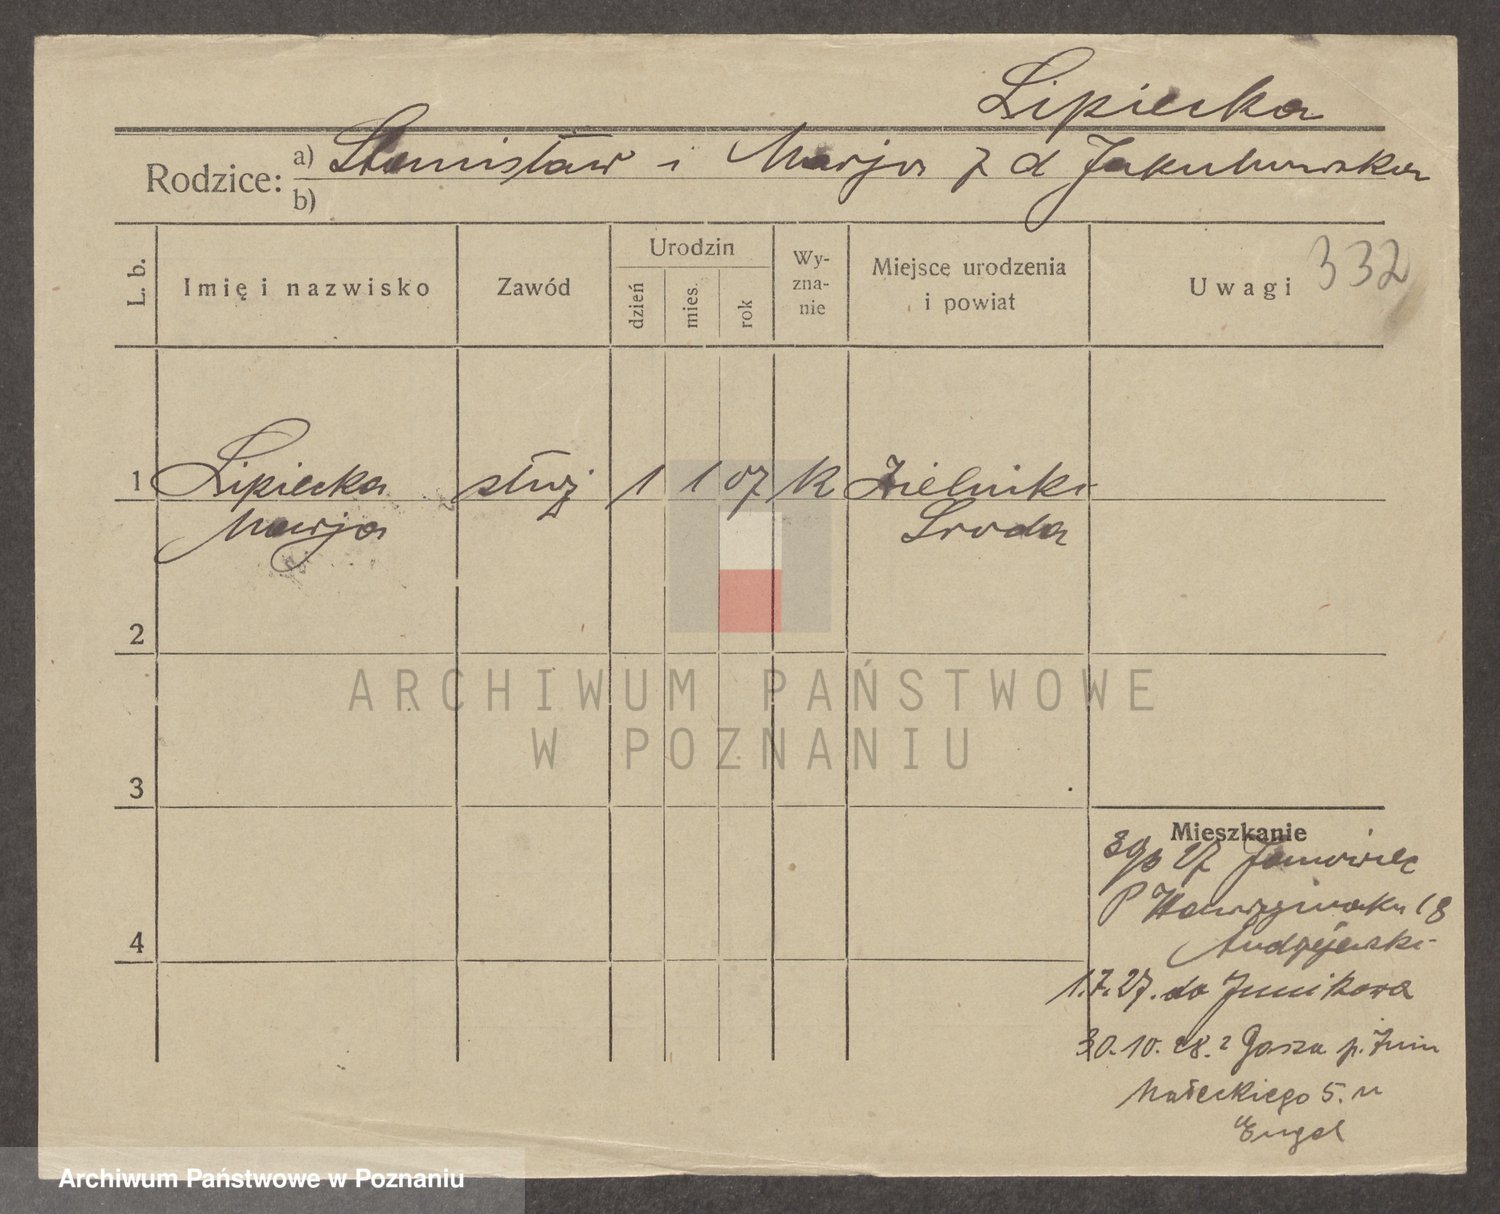 Lipiecka
Rodzice: a) Stanisław i Marja z d Jakubowska
b)
L. b.
Imię i nazwisko
Zawód
Urodzin
dzień
mies.
rok
Wy-
zna-
nie
Miejsce urodzenia
i powiat
Uwagi 332
1 Lipiecka służ 1 1 07 k Zielniki
Marja Sroda
2
3
4
Mieszkanie
27 Janowiec
18
Andrzejewski
1.7.27. do Junikowa
30.10.28. z
Małeckiego 5. u
Engel
ARCHIWUM PAŃSTWOWE
W POZNANIU
Archiwum Państwowe w Poznaniu